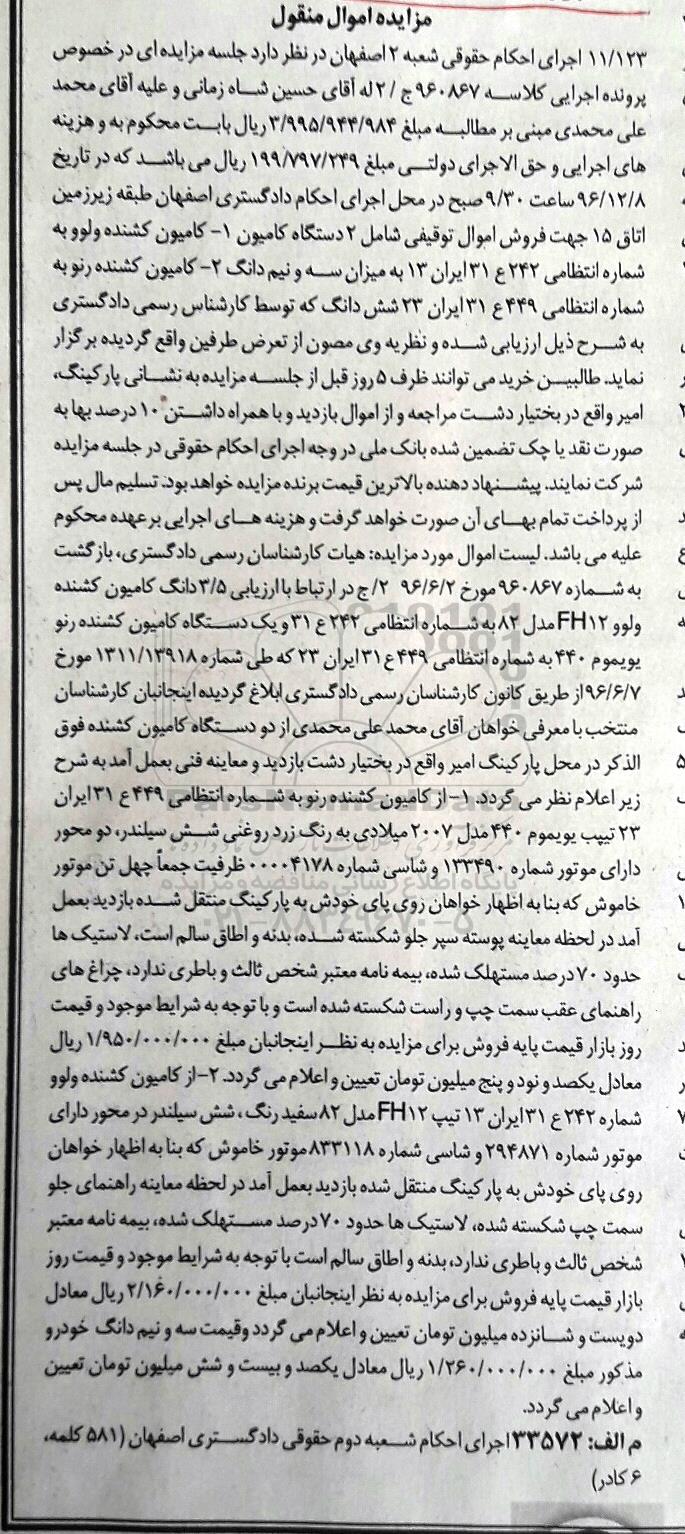 مزایده اموال منقول
۱۱/۱۲۳ اجرای احکام حقوقی شعبه ۲ اصفهان در نظر دارد جلسه مزایده ای در خصوص
پرونده اجرایی کلاسه ۹۶۰۸۶۷ ج / ۲ له آقای حسین شاه زمانی و علیه آقای محمد
علی محمدی مبنی بر مطالبه مبلغ ۳/۹۹۵/۹۴۴/۹۸۴ ریال بابت محکوم به و هزینه
های اجرایی و حق الاجرای دولتی مبلغ ۱۹۹/۷۹۷/۲۴۹ ریال می باشد که در تاریخ
۹۶/۱۲/۸ ساعت ۹/۳۰ صبح در محل اجرای احکام دادگستری اصفهان طبقه زیرزمین
اتاق ۱۵ جهت فروش اموال توقیفی شامل ۲ دستگاه کامیون ۱- کامیون کشنده ولوو به
شماره انتظامی ۲۴۲ ع ۳۱ ایران ۱۳ به میزان سه و نیم دانگ ۲- کامیون کشنده رنو به
شماره انتظامی ۴۴۹ ع ۳۱ ایران ۲۳ شش دانگ که توسط کارشناس رسمی دادگستری
به شرح ذیل ارزیابی شده و نظریه وی مصون از تعرض طرفین واقع گردیده برگزار
نماید. طالبین خرید می توانند ظرف ۵ روز قبل از جلسه مزایده به نشانی پارکینگ،
امیر واقع در بختیار دشت مراجعه و از اموال بازدید و با همراه داشتن ۱۰ درصد بها به
صورت نقد یا چک تضمین شده بانک ملی در وجه اجرای احکام حقوقی در جلسه مزایده
شرکت نمایند. پیشنهاد دهنده بالاترین قیمت برنده مزایده خواهد بود. تسلیم مال پس
از پرداخت تمام بهای آن صورت خواهد گرفت و هزینه های اجرایی بر عهده محکوم
علیه می باشد. لیست اموال مورد مزایده: هیات کارشناسان رسمی دادگستری، بازگشت
به شماره ۹۶۰۸۶۷ مورخ ۹۶/۶/۲ ۲/ ج در ارتباط با ارزیابی ۳/۵ دانگ کامیون کشنده
ولوو FH۱۲ مدل ۸۲ به شماره انتظامی ۲۴۲ ع ۳۱ و یک دستگاه کامیون کشنده رنو
پویموم ۴۴۰ به شماره انتظامی ۴۴۹ ع ۳۱ ایران ۲۳ که طی شماره ۱۳۱۱/۱۳۹۱۸ مورخ
۹۶/۶/۷ از طریق کانون کارشناسان رسمی دادگستری ابلاغ گردیده اینجانبان کارشناسان
منتخب با معرفی خواهان آقای محمد علی محمدی از دو دستگاه کامیون کشنده فوق
الذکر در محل پارکینگ امیر واقع در بختیار دشت بازدید و معاینه فنی بعمل آمد به شرح
زیر اعلام نظر می گردد. ۱- از کامیون کشنده رنو به شماره انتظامی ۴۴۹ ع ۳۱ ایران
۲۳ تیپ پویموم ۴۴۰ مدل ۲۰۰۷ میلادی به رنگ زرد روغنی شش سیلندر، دو محور
دارای موتور شماره ۱۳۳۴۹۰ و شاسی شماره ۰۰۰۰۴۱۷۸ ظرفیت جمعاً چهل تن موتور
خاموش که بنا به اظهار خواهان روی پای خودش به پارکینگ منتقل شده بازدید بعمل
آمد در لحظه معاینه پوسته سپر جلو شکسته شده، بدنه و اطاق سالم است، لاستیک ها
حدود ۷۰ درصد مستهلک شده، بیمه نامه معتبر شخص ثالث و باطری ندارد، چراغ های
راهنمای عقب سمت چپ و راست شکسته شده است و با توجه به شرایط موجود و قیمت
روز بازار قیمت پایه فروش برای مزایده به نظر اینجانبان مبلغ ۱/۹۵۰/۰۰۰/۰۰۰ ریال
معادل یکصد و نود و پنج میلیون تومان تعیین و اعلام می گردد. ۲- از کامیون کشنده ولوو
شماره ۲۴۲ ع ۳۱ ایران ۱۳ تیپ FH۱۲ مدل ۸۲ سفید رنگ ، شش سیلندر در محور دارای
موتور شماره ۲۹۴۸۷۱ و شاسی شماره ۸۳۳۱۱۸ موتور خاموش که بنا به اظهار خواهان
روی پای خودش به پارکینگ منتقل شده بازدید بعمل آمد در لحظه معاینه راهنمای جلو
سمت چپ شکسته شده، لاستیک ها حدود ۷۰ درصد مستهلک شده، بیمه نامه معتبر
شخص ثالث و باطری ندارد، بدنه و اطاق سالم است با توجه به شرایط موجود و قیمت روز
بازار قیمت پایه فروش برای مزایده به نظر اینجانبان مبلغ ۲/۱۶۰/۰۰۰/۰۰۰ ریال معادل
دویست و شانزده میلیون تومان تعیین و اعلام می گردد وقیمت سه و نیم دانگ خودرو
مذکور مبلغ ۱/۲۶۰/۰۰۰/۰۰۰ ریال معادل یکصد و بیست و شش میلیون تومان تعیین
و اعلام می گردد.
م الف: ۳۳۵۷۲ اجرای احکام شعبه دوم حقوقی دادگستری اصفهان (۵۸۱ کلمه،
۶ کادر)